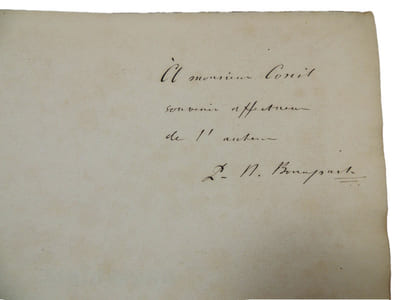 À monsieur Conil
souvenir affectueux
de l'auteur
P. N. Bonaparte